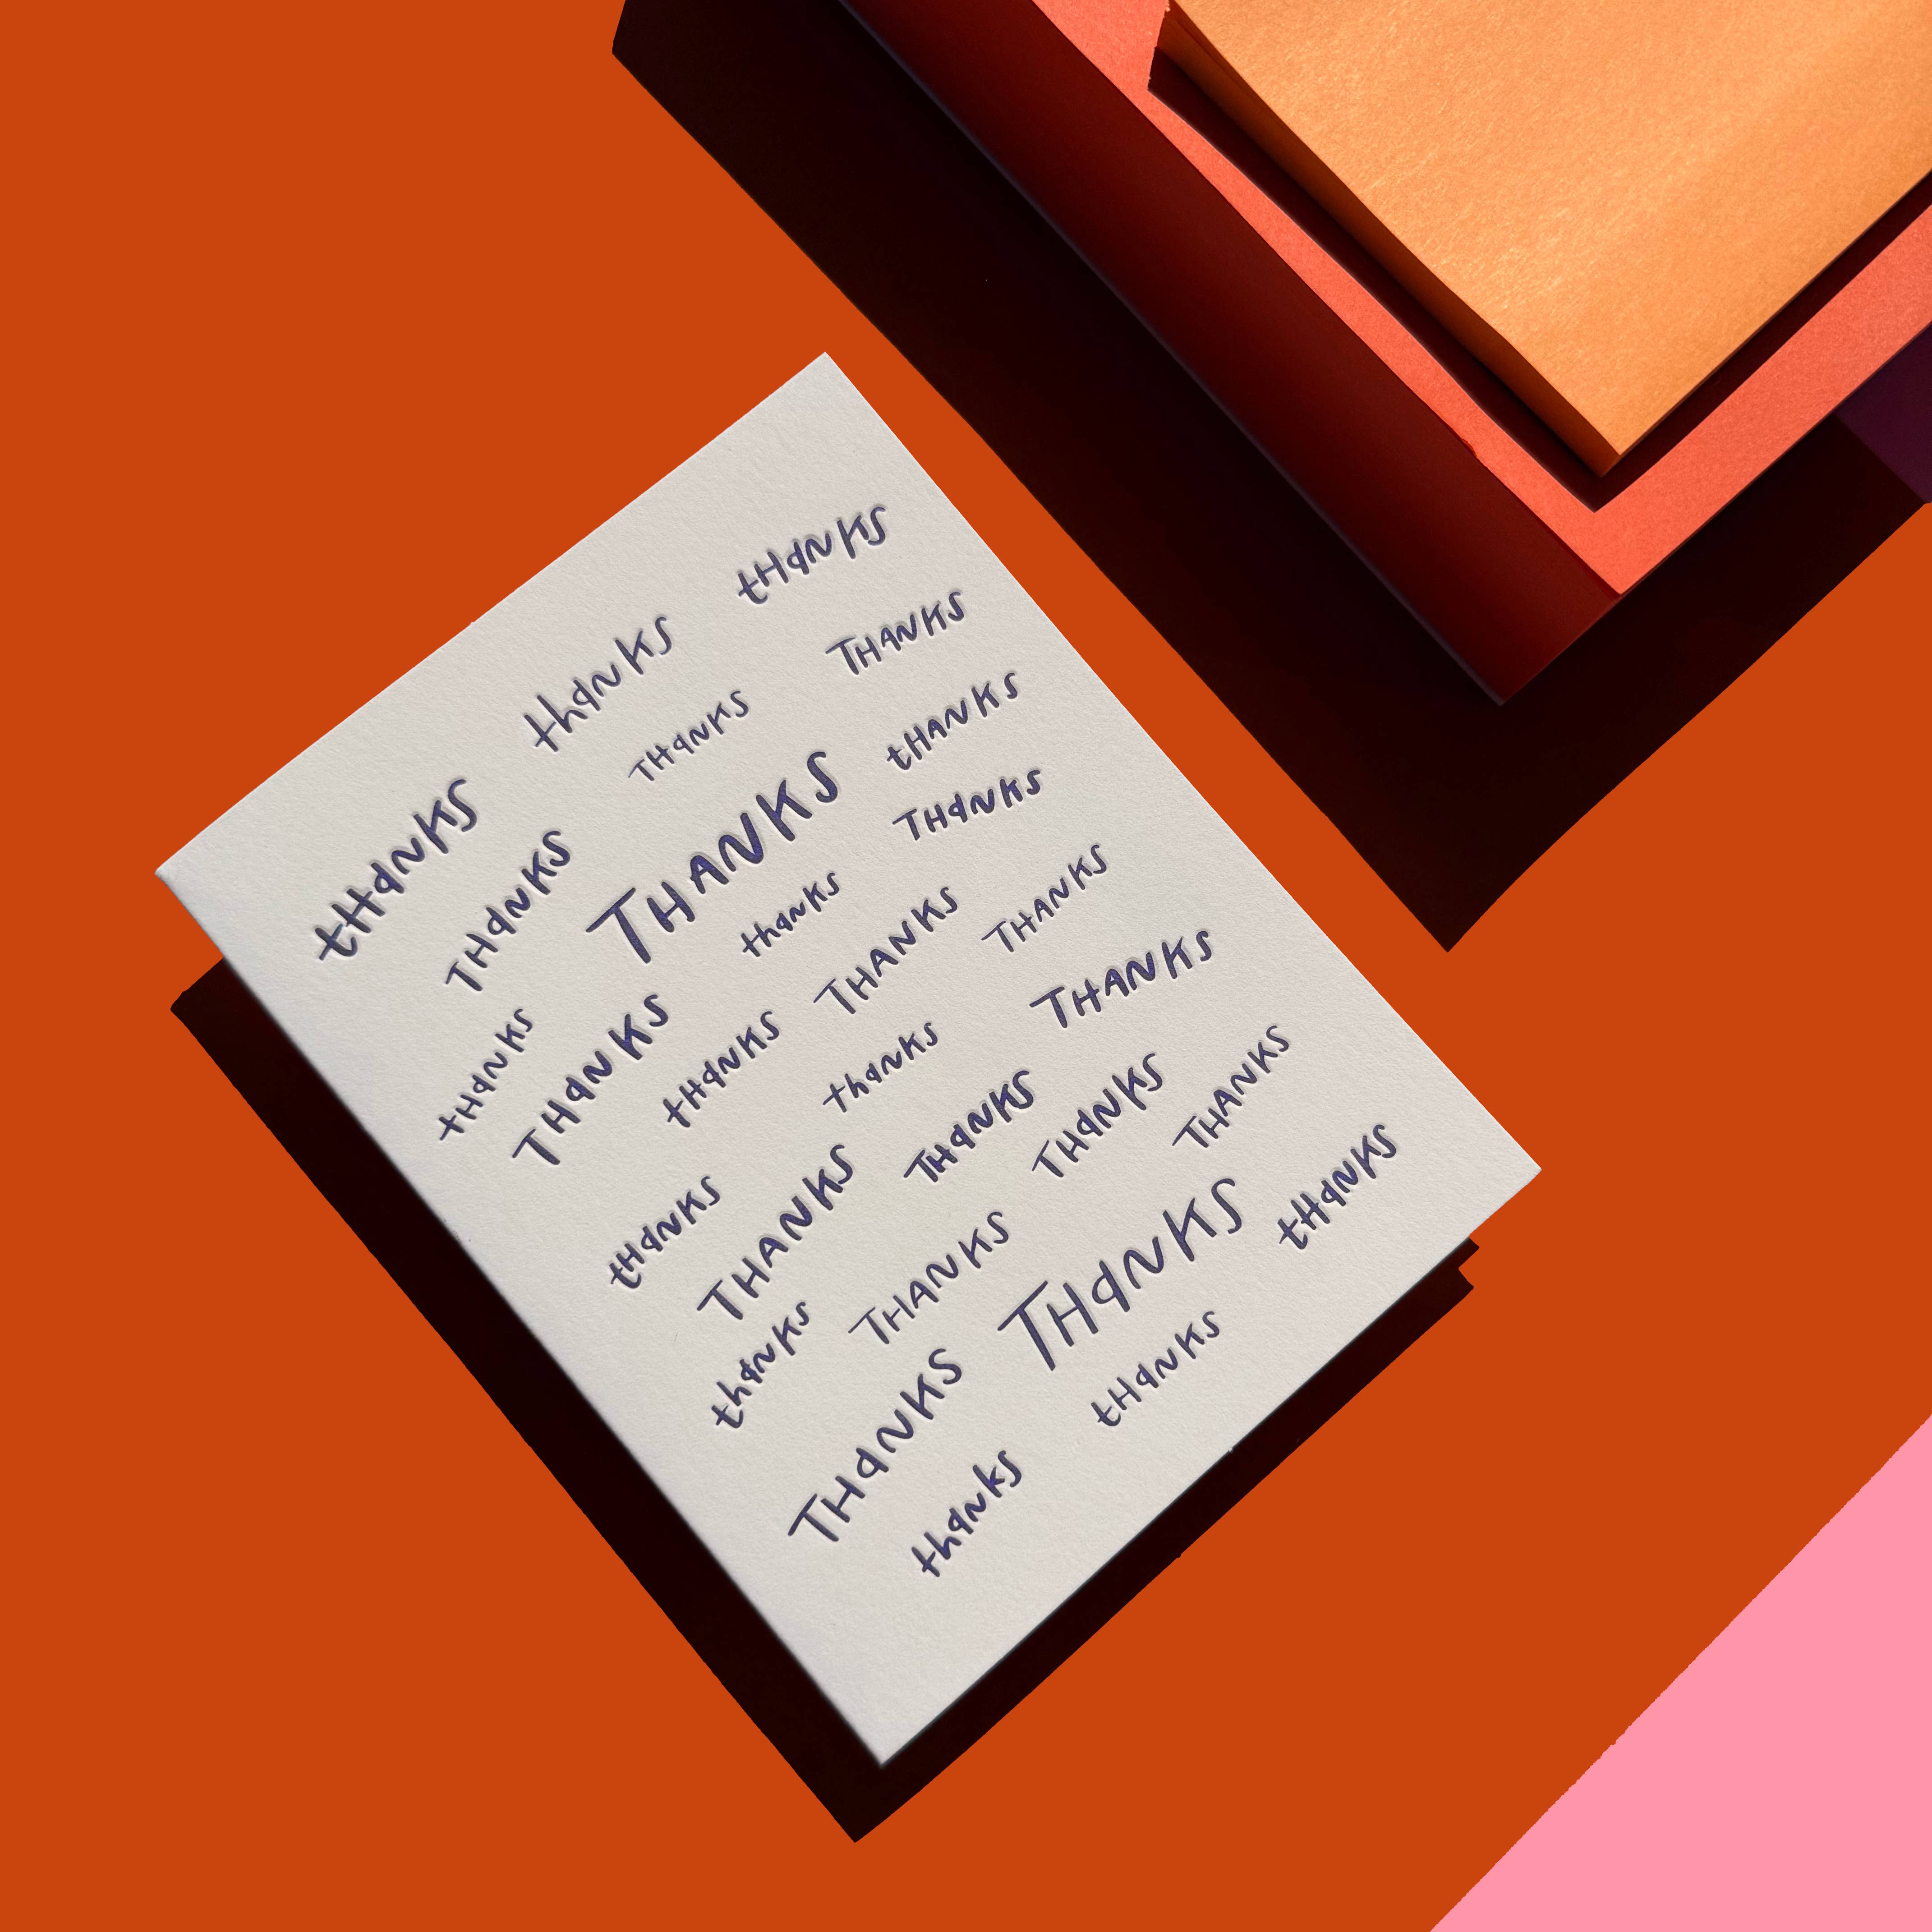 tHaNKS thaNKS tHaNKS
THaNKS THaNKS THANKS
THANKS tHANKS
tHaNKS THaNKS thanks THaNKS
tHaNKS THANKS THANKS
thanks THANKS
tHaNKS THANKS THaNKS THaNKS THANKS
thaNKS THANKS THaNKS tHaNKS
THaNKS tHaNKS
thanks